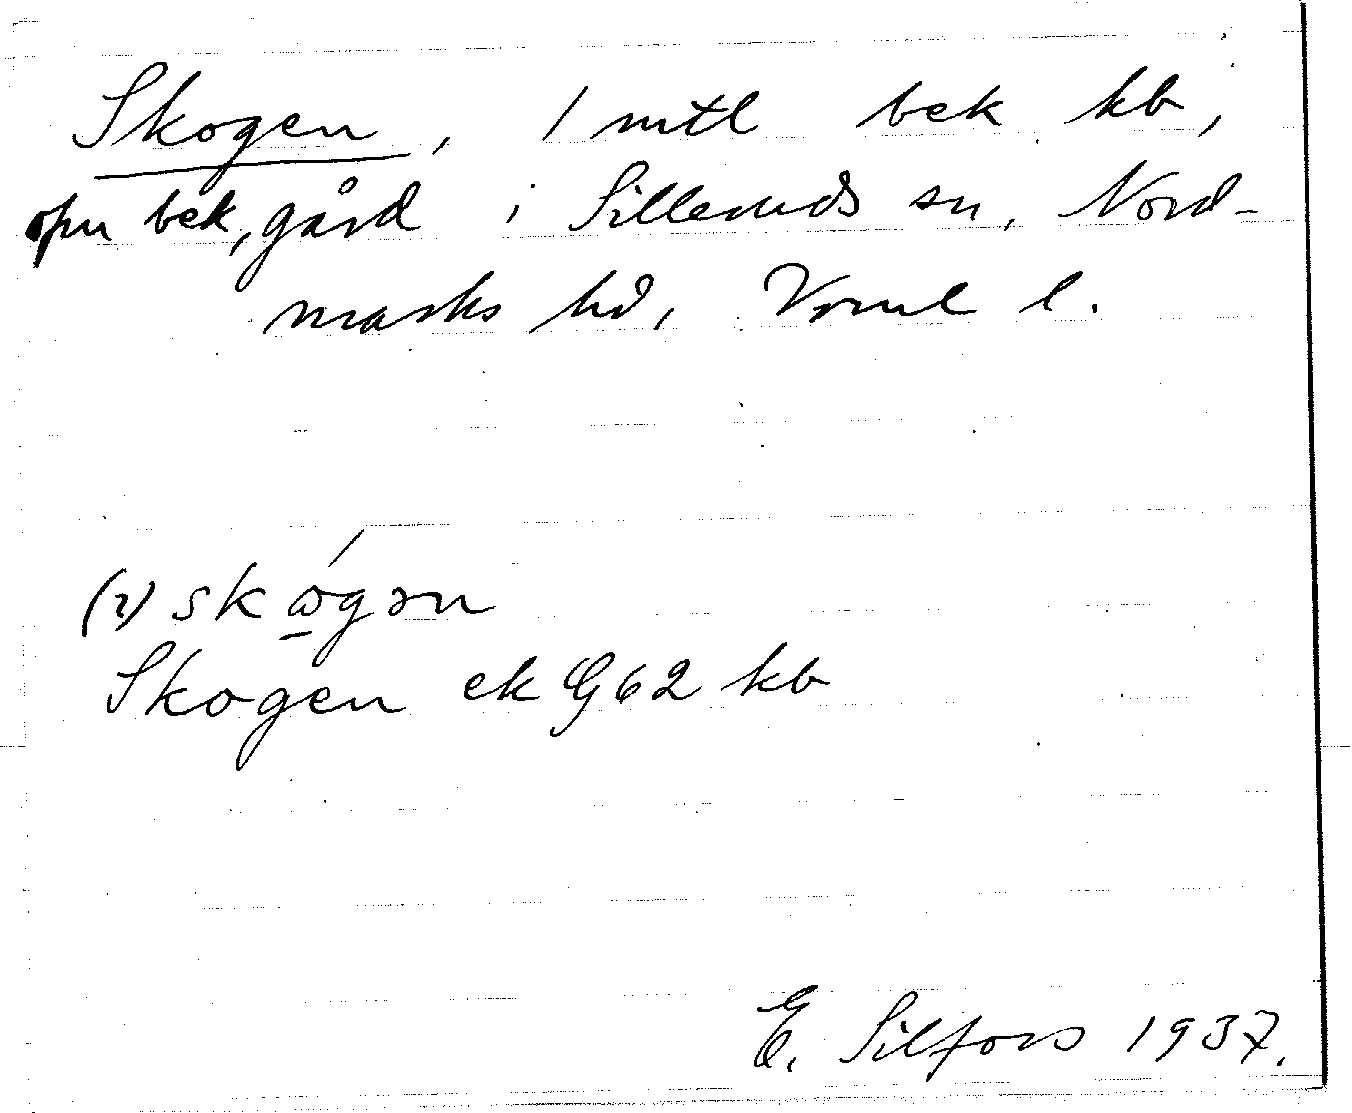 Skogen, 1 mtl bek kb,
opu bek, gård i Silleruds sn, Nord-
marks hd, Vrml l.
(2) skωgən
Skogen ek G62 kb
E. Silfors 1937.